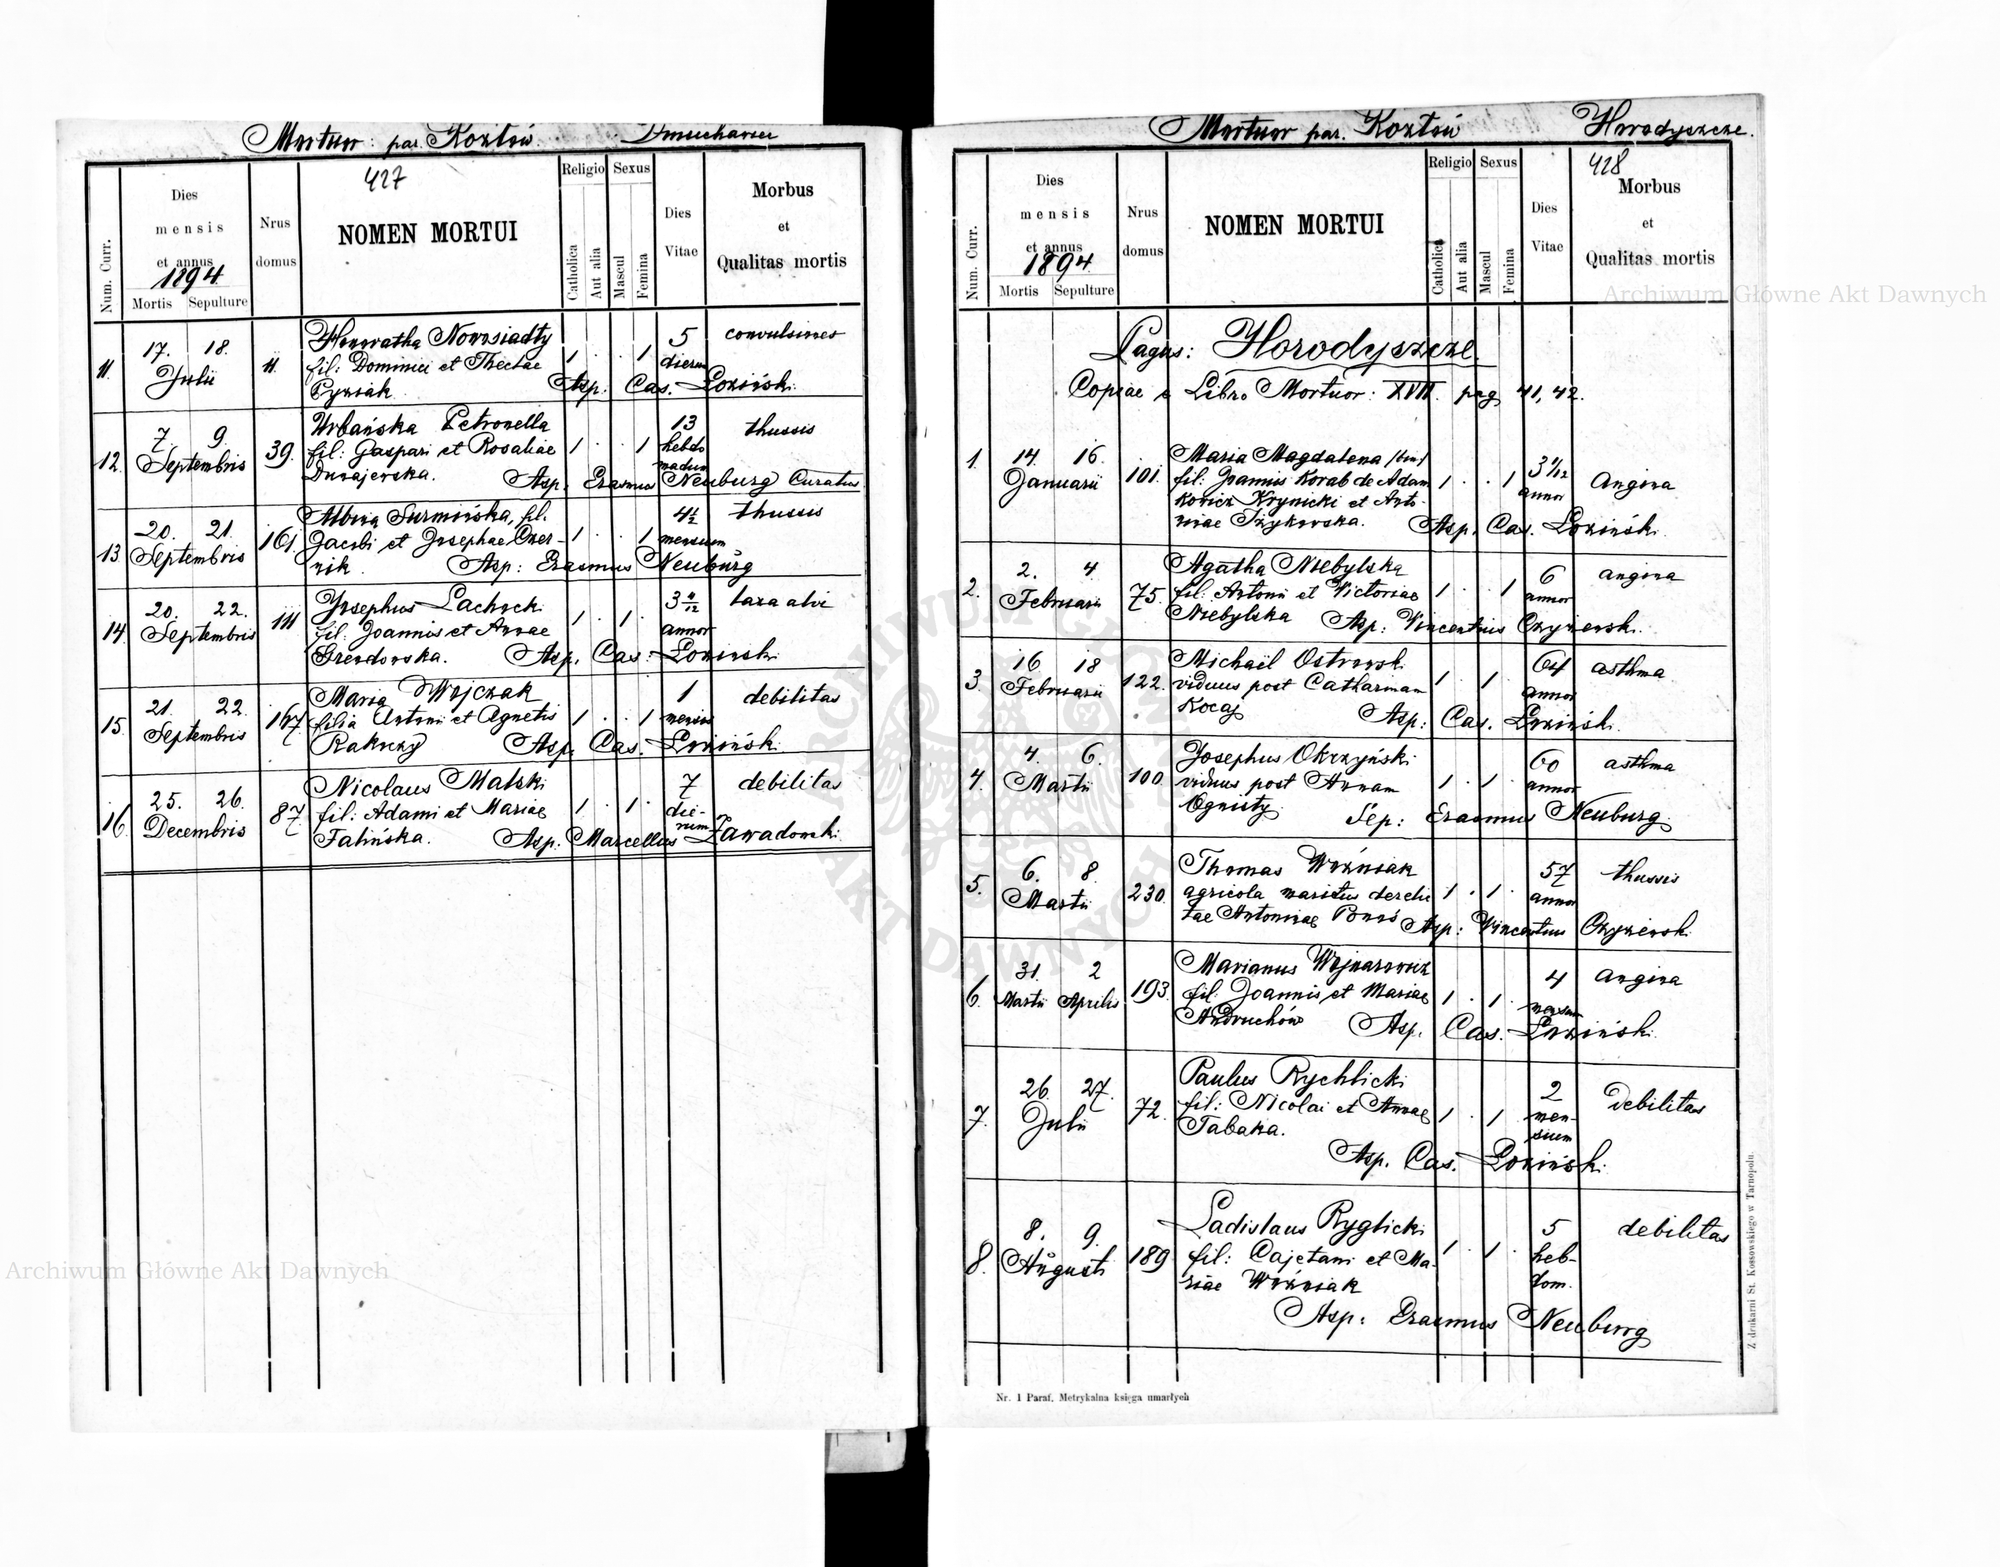 Mortuor: par. Kozłów
427
Num. Curr.
Dies
mensis
et annus
1894.
Mortis Sepulture
Nrus
domus
NOMEN MORTUI
Religio
Catholica
Aut alia
Sexus
Mascul
Femina
Dies
Vitae
Morbus
et
Qualitas mortis
11. 17. 18. 11. Honoratha Nowosiadły 1 . . 1 5 convulsiones
Julii fil: Dominici et Theclae dierum
Pyziak. Asp. Cas. Łoziński.
12. 7. 9. 39. Urbańska Petronella 1 . . 1 13 thussis
Septembris fil: Gaspari et Rosaliae hebdo
madum
Dunajewska. Asp. Erasmus Neuburg Curatus
13. 20. 21. 161. Albina Surmińska, fil. 1 . . 1 4½ thussis
Septembris Jacobi et Josephae Czer- mensium
nik. Asp: Erasmus Neuburg
14. 20. 22. 111 Josephus Lachock 1 . 1 . 3 taxa alvi
Septembris fil: Joannis et Annae annor
Asp. Cas: Łoziński
15. 21. 22. 167. Maria Wojczak 1 . . 1 1 debilitas
Septembris filia Antoni et Agnetis mensis
Rakoczy Asp. Cas. Łoziński.
16. 25. 26. 87. Nicolaus Malski 1 . 1 . 7 debilitas
Decembris fil: Adami et Mariae die-
rum
Falińska. Asp. Marcellus Zawadowski
Mortuor par. Kozłów Horodyszcze.
428
Num. Curr.
Dies
mensis
et annus
1894.
Mortis Sepulture
Nrus
domus
NOMEN MORTUI
Religio
Catholica
Aut alia
Sexus
Mascul
Femina
Dies
Vitae
Morbus
et
Qualitas mortis
Pagus: Horodyszcze.
Copiae e Libro Mortuor: XVII. pag 41, 42.
1. 14. 16. 101. Maria Magdalena 1 . . 1 3 1/12 Angina
Januarii fil: Joannis Korab de Adam annor
kowicz Krynicki et Anto-
niae Iżykowska. Asp. Cas. Łoziński.
2. 2. 4 75. Agatha Niebylska 1 . . 1 6 angina
Februarii fil: Antoni et Victoriae annor
Niebylska Asp: Vincentius Czyżewski.
3. 16 18 122. Michaël Ostrowski 1 . 1 . 64 asthma
Februarii viduus post Catharinam annor
Kocaj Asp: Cas. Łoziński.
4. 4. 6. 100. Josephus Okrzyński 1 . 1 . 60 asthma
Martii viduus post Annam annor
Ognisty. Sep: Erasmus Neuburg.
5. 6. 8. 230. Thomas Woźniak 1 . 1 . 57 thussis
Martii agricola maritus derelic annor
tae Antoninae Asp: Vincentius Czyżewski.
6. 31. 2 193. Marianus Wojnarowicz 1 . 1 . 4 angina
Martii Aprilis fil: Joannis et Mariae mensium
Andruchów Asp. Cas. Łoziński.
7. 26. 27. 72. Paulus Rychlicki 1 . 1 2 Debilitas
Julii fil: Nicolai et Annae men-
sium
Tabaka.
Asp. Cas. Łoziński.
8. 8. 9. 189 Ladislaus Ryglicki 1 . 1 . 5 debilitas
Augusti fil: Cajetani et Ma- heb-
riae Woźniak dom.
Asp: Erasmus Neuburg
Nr. 1 Paraf. Metrykalna księga umarłych
Z drukarni St. Kossowskiego w Tarnopolu.
Archiwum Główne Akt Dawnych
Archiwum Główne Akt Dawnych
ARCHIWUM GŁÓWNE AKT DAWNYCH